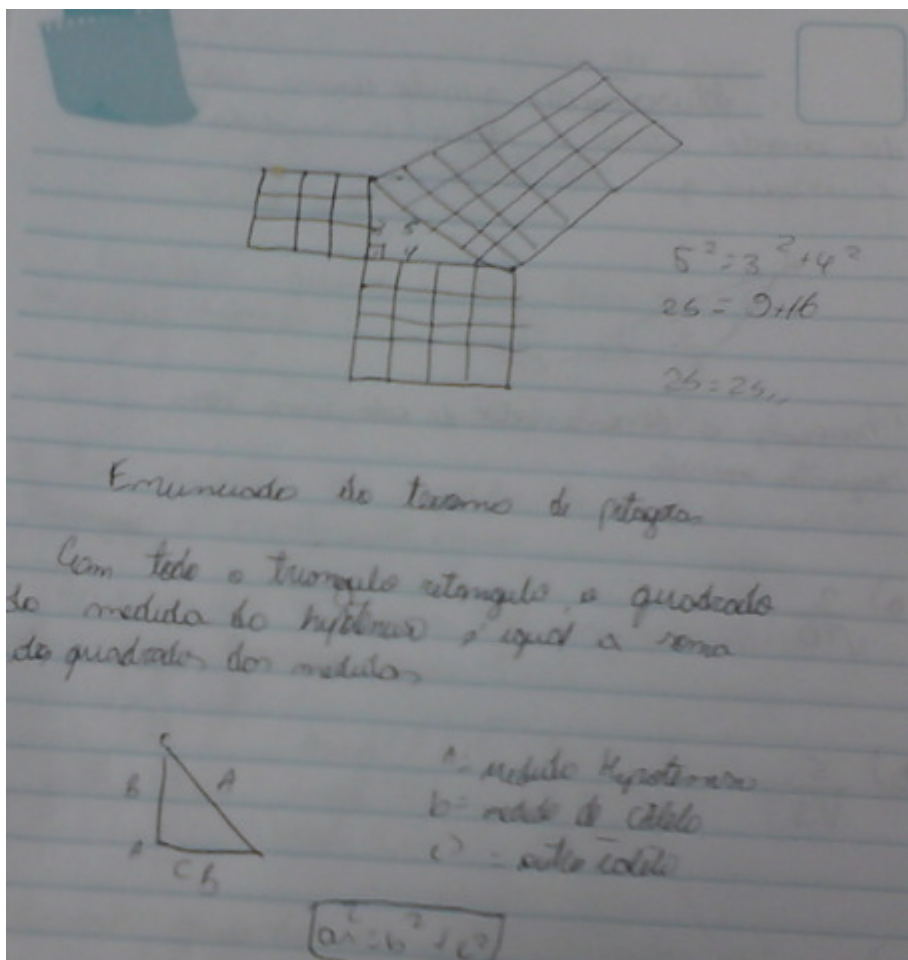 3 5
4
5² = 3² + 4²
25 = 9 + 16
25 = 25,,
Enunciado do de pitagora
Com todo o triangulo retangulo, o quadrado
do medida do é igual a soma
do quadrados dos medidas
C
B A
A
C b
A = medida Hypotenusa
b = medida do cateto
c = outro cateto
a² = b² + c²